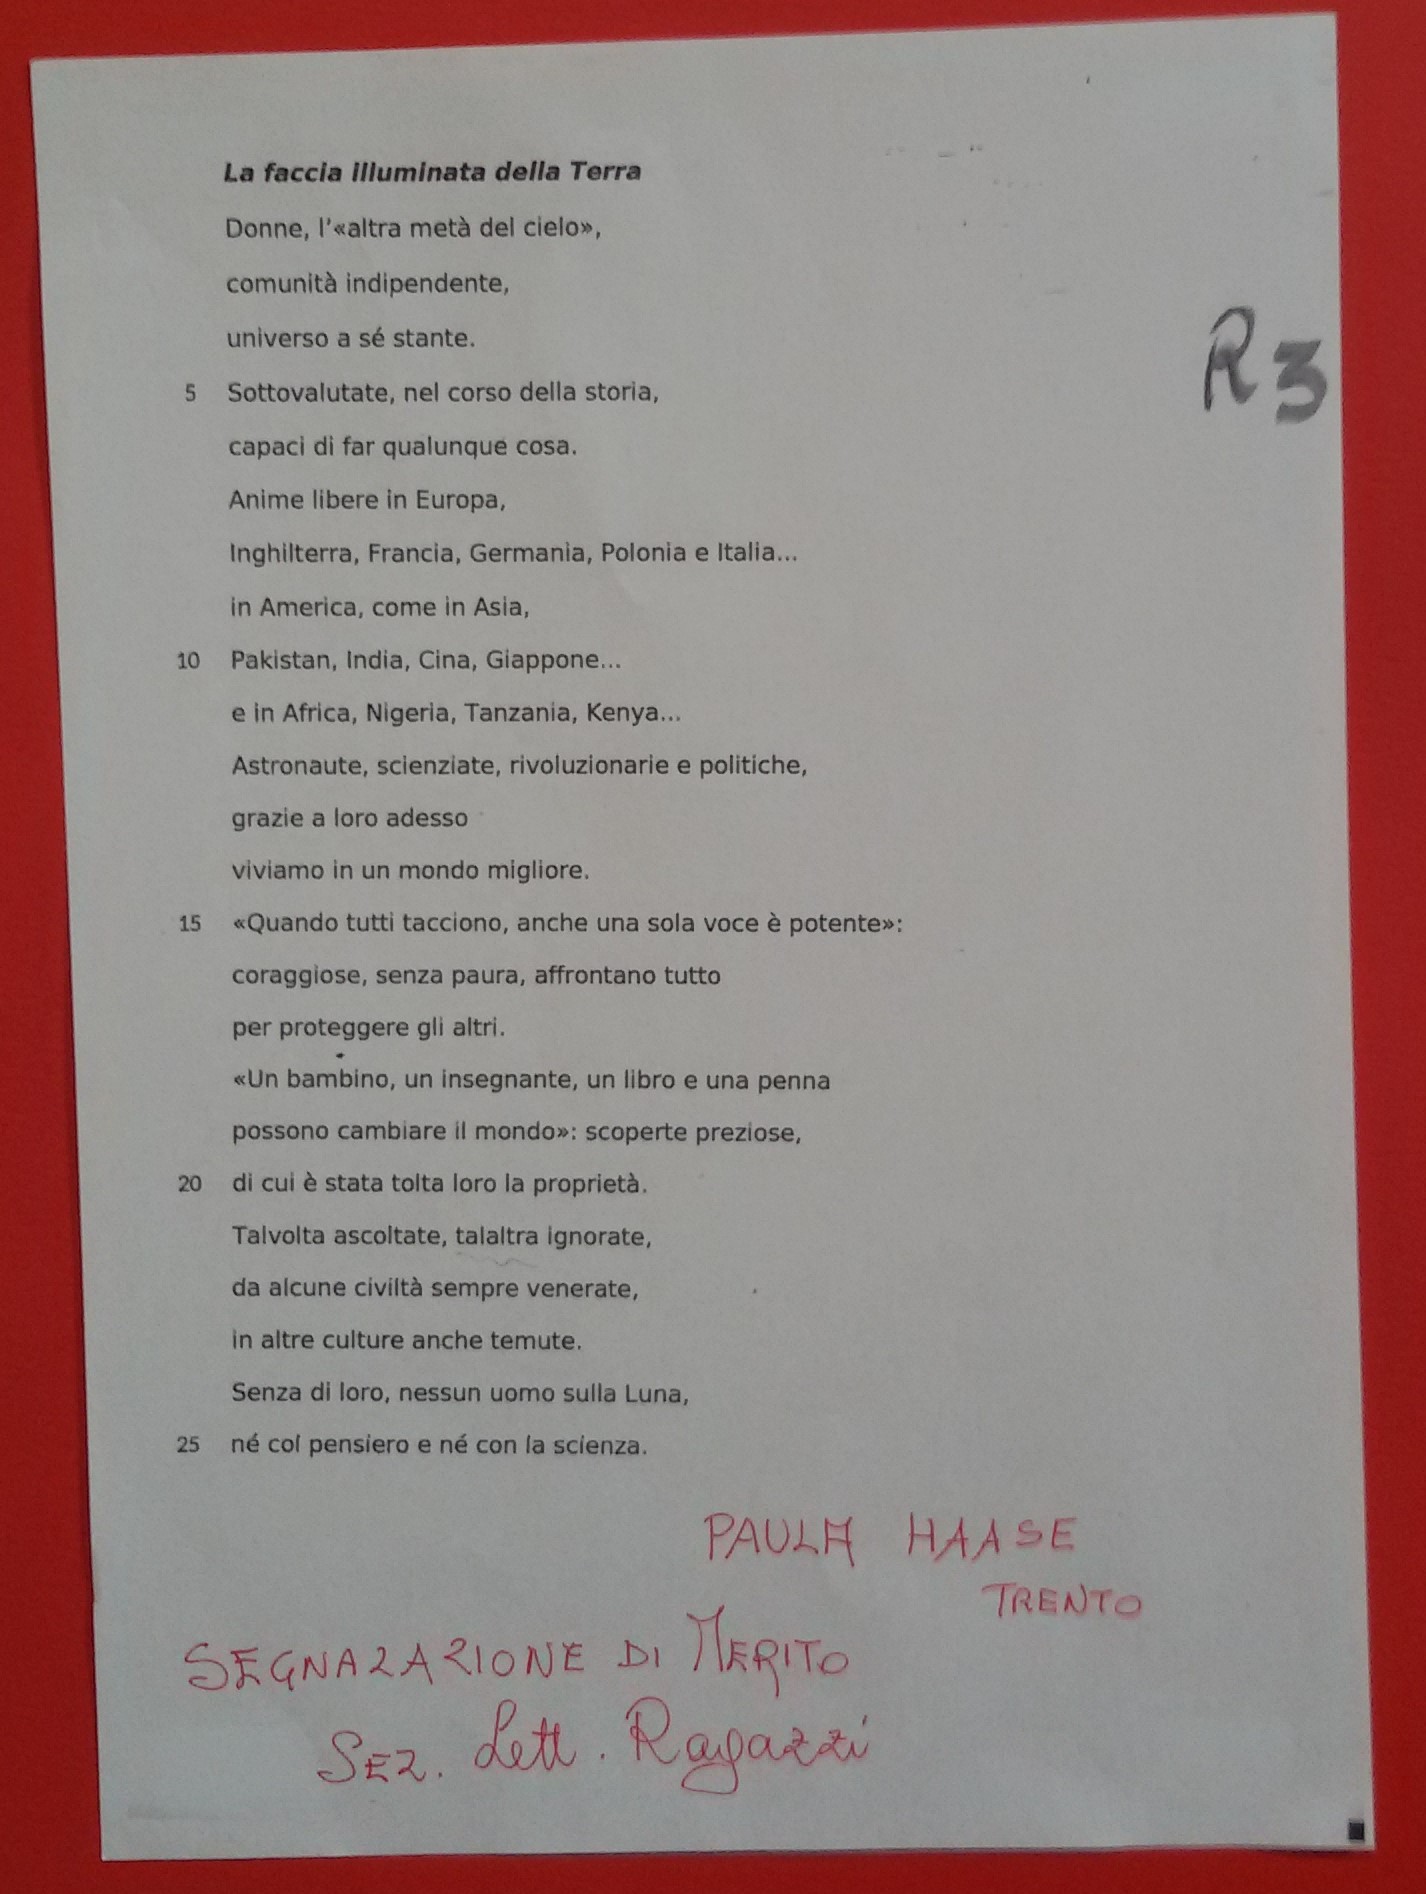 La faccia illuminata della Terra
Donne, l'«altra metà del cielo»,
comunità indipendente,
universo a sé stante.
5 Sottovalutate, nel corso della storia,
capaci di far qualunque cosa.
Anime libere in Europa,
Inghilterra, Francia, Germania, Polonia e Italia...
in America, come in Asia,
10 Pakistan, India, Cina, Giappone...
e in Africa, Nigeria, Tanzania, Kenya...
Astronaute, scienziate, rivoluzionarie e politiche,
grazie a loro adesso
viviamo in un mondo migliore.
15 «Quando tutti tacciono, anche una sola voce è potente»:
coraggiose, senza paura, affrontano tutto
per proteggere gli altri.
«Un bambino, un insegnante, un libro e una penna
possono cambiare il mondo»: scoperte preziose,
20 di cui è stata tolta loro la proprietà.
Talvolta ascoltate, talaltra ignorate,
da alcune civiltà sempre venerate,
in altre culture anche temute.
Senza di loro, nessun uomo sulla Luna,
25 né col pensiero e né con la scienza.
R3
PAULA HAASE
TRENTO
SEGNALAZIONE DI MERITO
SEZ. Lett. Ragazzi